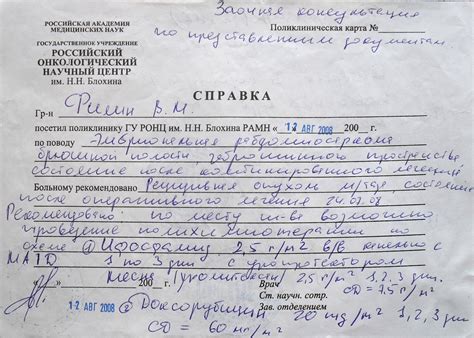 Заочная консультация
по представленным документам
РОССИЙСКАЯ АКАДЕМИЯ
МЕДИЦИНСКИХ НАУК
Поликлиническая карта №
ГОСУДАРСТВЕННОЕ УЧРЕЖДЕНИЕ
РОССИЙСКИЙ
ОНКОЛОГИЧЕСКИЙ
НАУЧНЫЙ ЦЕНТР
им. Н.Н. Блохина
СПРАВКА
Гр-н В.М.
посетил поликлинику ГУ РОНЦ им. Н.Н. Блохина РАМН « 12 АВГ 2008 200 г.
по поводу Эмбриональная рабдомиосаркома
брюшной полости, забрюшинного пространства
состояние после комбинированного лечения
Больному рекомендовано Рецидивная опухоль м/таза, состояние
после оперативного лечения 24.07.08
Рекомендовано: по месту ж-ва возможно
проведение полихимиотерапии по
схеме Ифосфамид 2,5 г/м² в/в капельно
MAID 1 по 3 дни с уропротектором
Месна (уромитексан) 2,5 г/м² 1,2,3 дни.
« » 200 г. Врач
СД = 7,5 г/м²
Ст. научн. сотр.
12 АВГ 2008
Зав. отделением
Доксорубицин 20 mg/м² 1,2,3 дни
СД = 60 мг/м²